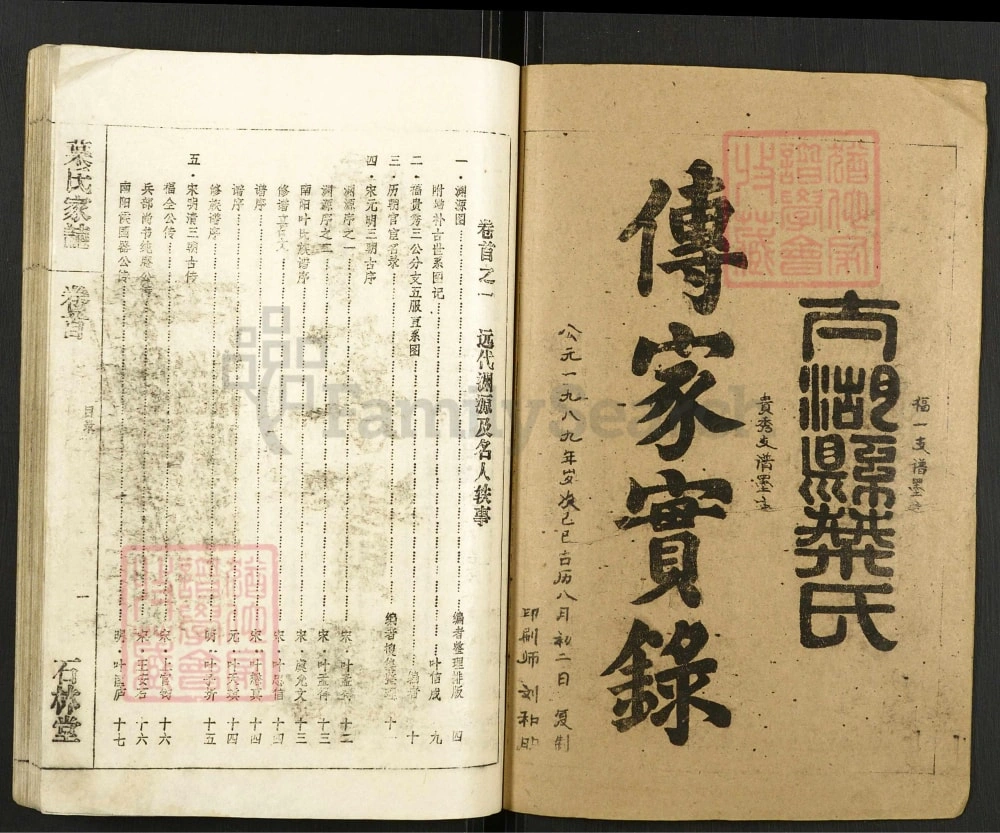 福一支譜墨
太湖縣葉氏
貴秀支譜墨
傳家實錄
公元一九八九年岁次己巳古历八月初二日 复制
印刷师 刘和
FamilySearch
卷首之一 远代渊源及名人轶事
一·渊源图 编者整理排版 四
附 古世系图记 叶信成 九
二·福贵秀三公分支五服亘系图 编者 十
三·历朝官宦名录 编者 十一
四·宋元明三朝古序
渊源序之一 宋·叶孟得 十二
渊源序之二 宋·叶孟得 十三
南阳叶氏族谱序 宋·虞允文 十三
修谱 文 宋·叶 信 十四
谱序 宋·叶 真 十四
谱序 元·叶天 十四
修族谱序 明·叶子奇 十五
五·宋明清三朝古传
福全公传 宋·上官 十六
兵部尚书纯 公传 宋·王安石 十六
南阳侯国器公传 明·叶 庐 十七
葉氏家譜
卷首
目录
一
石林堂